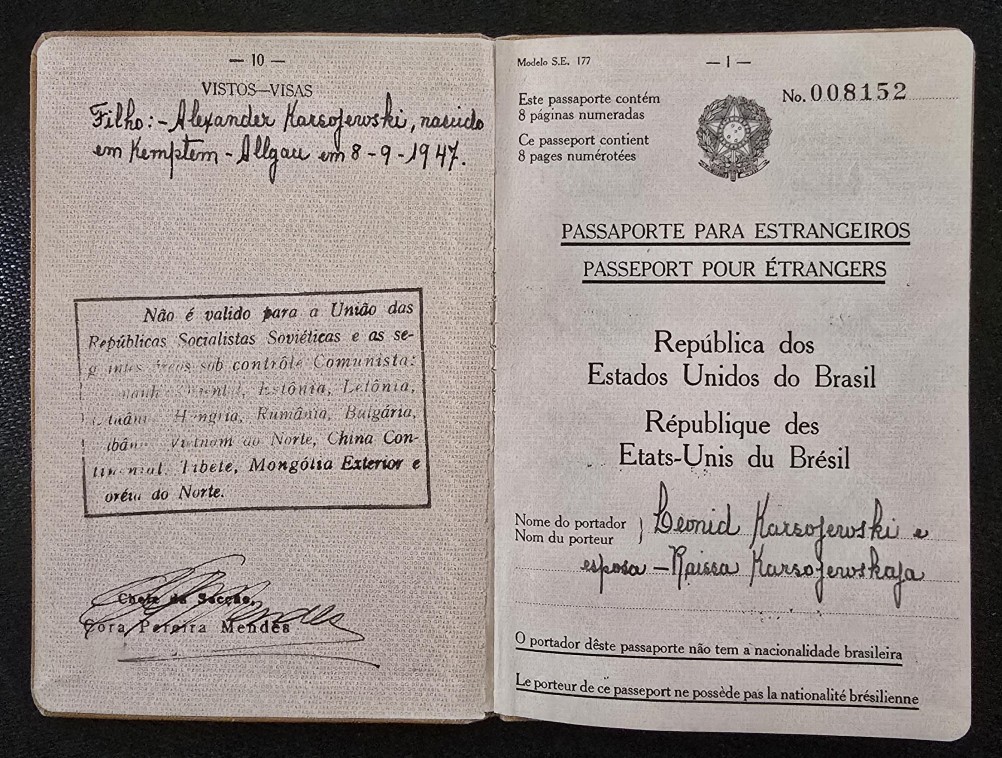 — 10 —
VISTOS—VISAS
Filho:- Alexander Karsojewski, nascido
em Kemptem - Allgau em 8-9-1947.
Não é valido para a União das
Repúblicas Socialistas Soviéticas e as se-
sob contrôle Comunista:
Estônia, Letônia,
Hungria, Rumânia, Bulgária,
Vietnam do Norte, China Con-
tinental, Tibete, Mongólia Exterior e
do Norte.
Chefe da Secção,
Cora Pereira Mendes
Modelo S.E. 177
— 1 —
Este passaporte contém
8 páginas numeradas
Ce passeport contient
8 pages numérotées
No. 008152
PASSAPORTE PARA ESTRANGEIROS
PASSEPORT POUR ÉTRANGERS
República dos
Estados Unidos do Brasil
République des
Etats-Unis du Brésil
Nome do portador
Nom du porteur
Leonid Karsojewski e
esposa - Raissa Karsojewskaja
O portador dêste passaporte não tem a nacionalidade brasileira
Le porteur de ce passeport ne possède pas la nationalité brésilienne